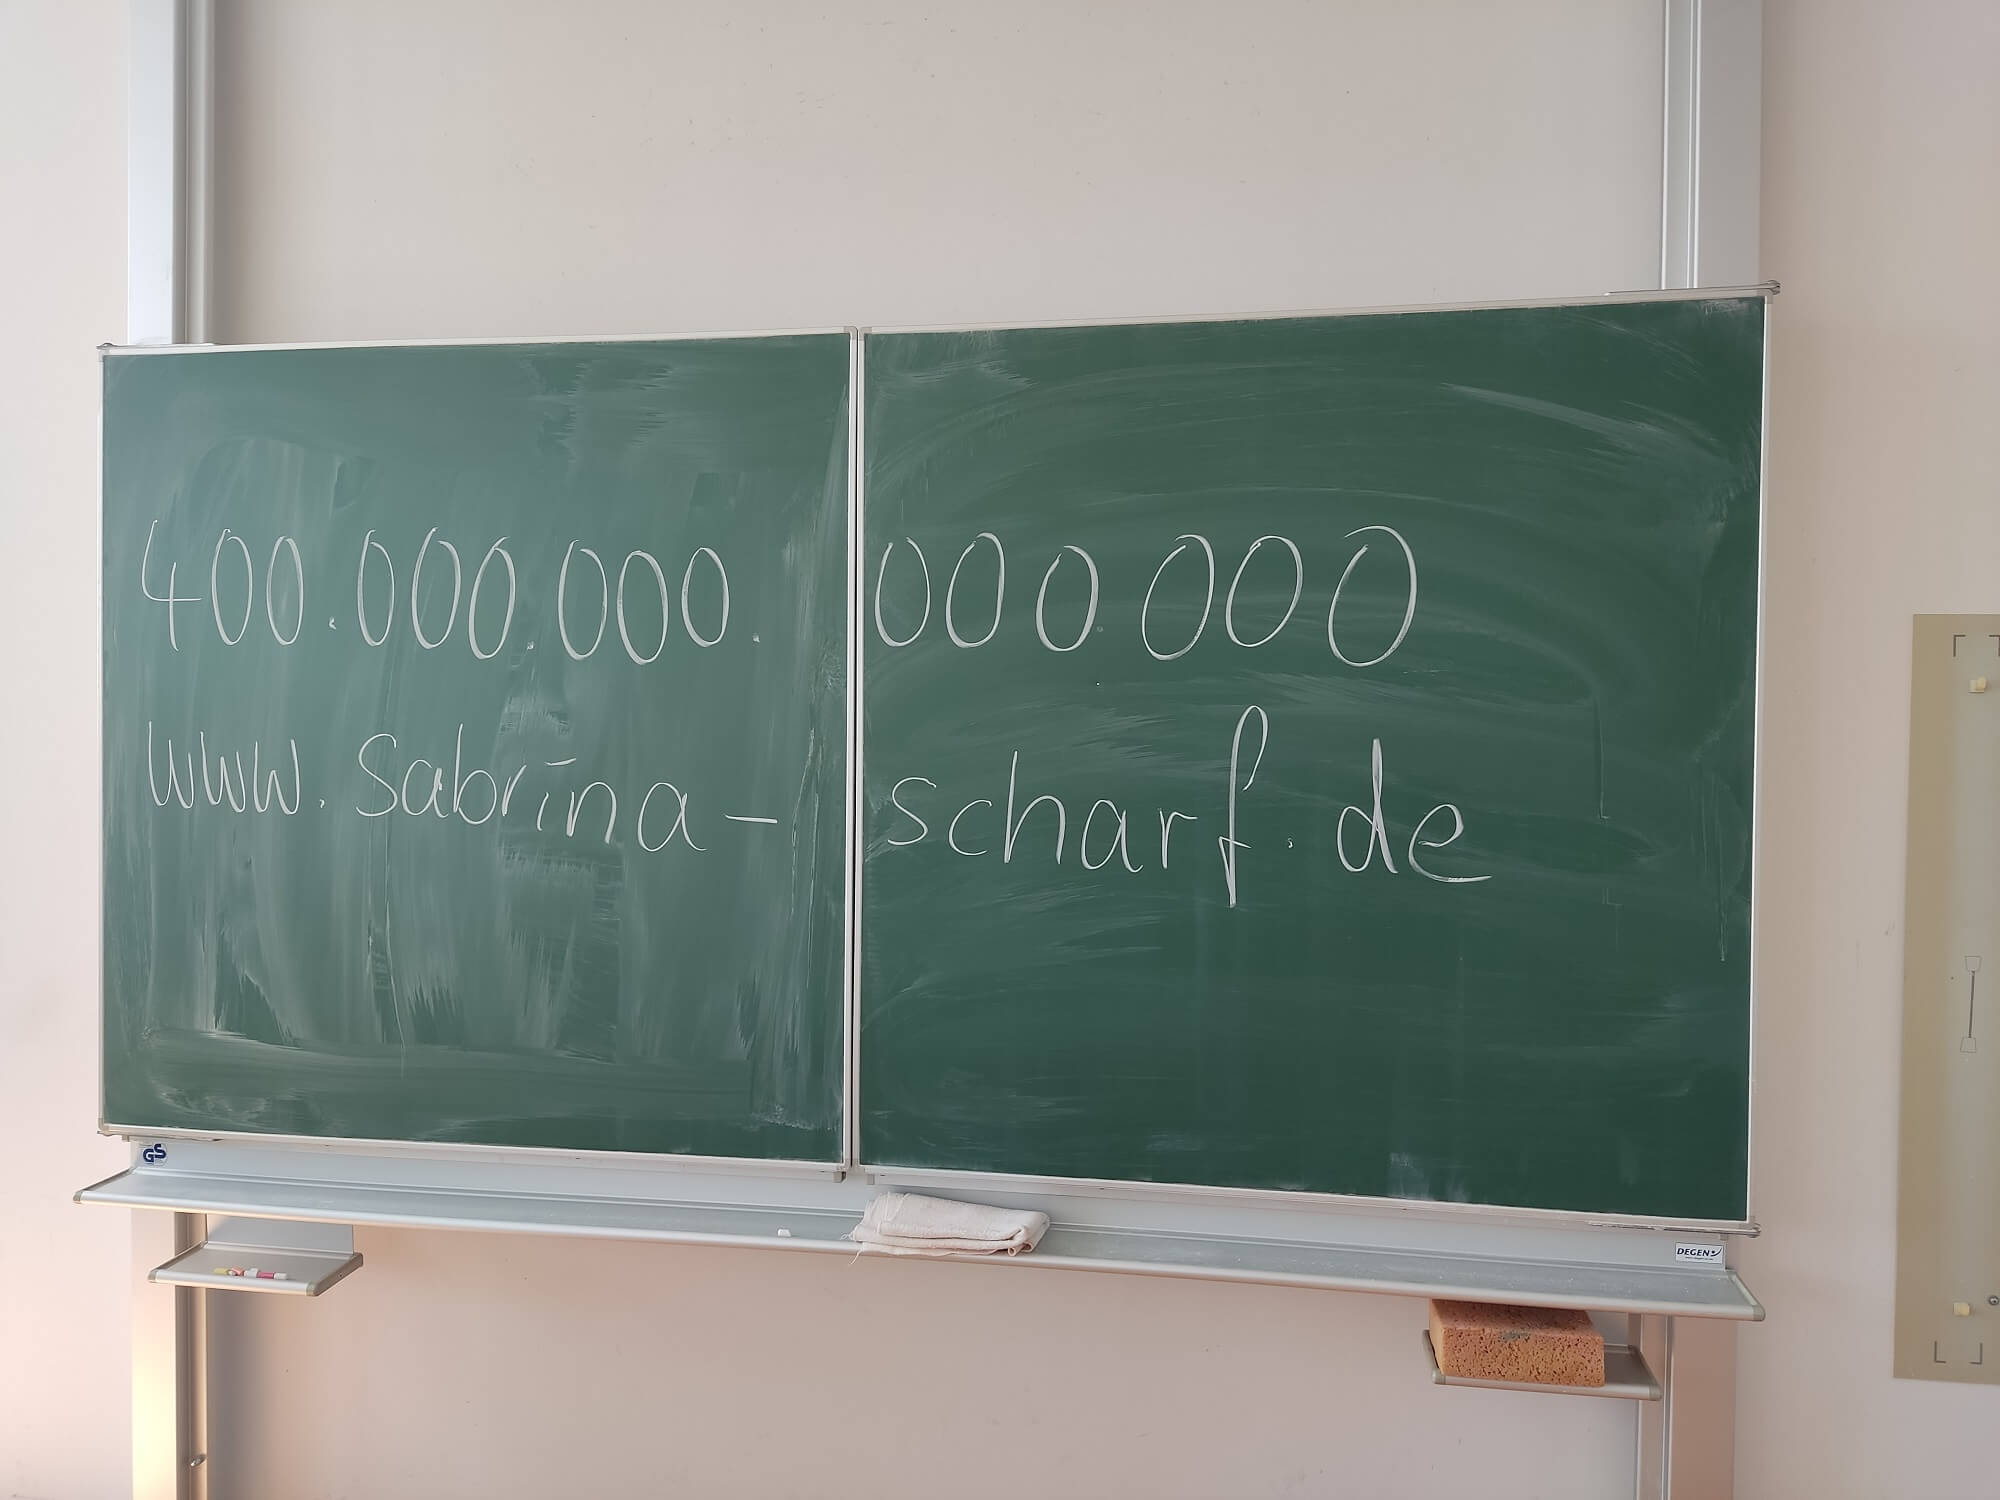 400.000.000.000.000
www.sabrina-scharf.de
GS
DEGEN